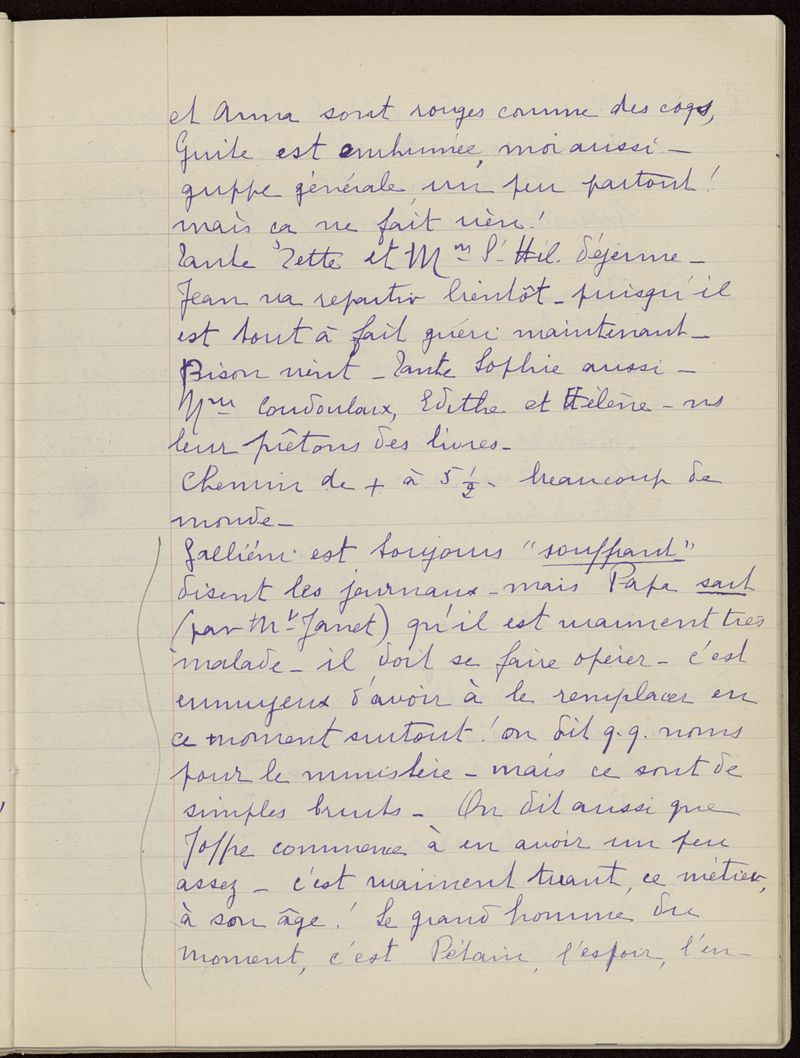 et Anna sont rouges comme des coqs,
Guite est enrhumée, moi aussi –
grippe générale, un peu partout !
mais ça ne fait rien !
Tante Zette et Mm St Hil. déjeune –
Jean va repartir bientôt – puisqu'il
est tout à fait guéri maintenant –
Bison vient – Tante Sophie aussi –
Mme Coudoulaux, Edithe et Hélène – ns
leur prêtons des livres –
Chemin de + à 5 ½ – beaucoup de
monde –
Galliéni est toujours "souffrant"
disent les journaux – mais Papa sait
(par Mr Janet) qu'il est vraiment très
malade – il doit se faire opérer – c'est
ennuyeux d'avoir à le remplacer en
ce moment surtout ! on dit q.q. noms
pour le ministère – mais ce sont de
simples bruits – On dit aussi que
Joffre commence à en avoir un peu
assez – c'est vraiment tuant, ce métier,
à son âge ! Le grand homme du
moment, c'est Pétain, l'espoir, l'en-